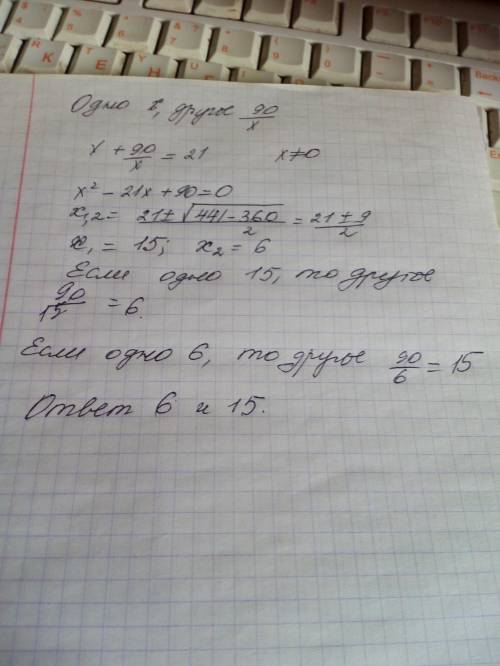 Одно x, другое 90/x
x + 90/x = 21 x≠0
x² - 21x + 90 = 0
x₁,₂ = (21 ± √(441 - 360))/2 = (21 ± 9)/2
x₁ = 15; x₂ = 6
Если одно 15, то другое
90/15 = 6.
Если одно 6, то другое 90/6 = 15
Ответ 6 и 15.